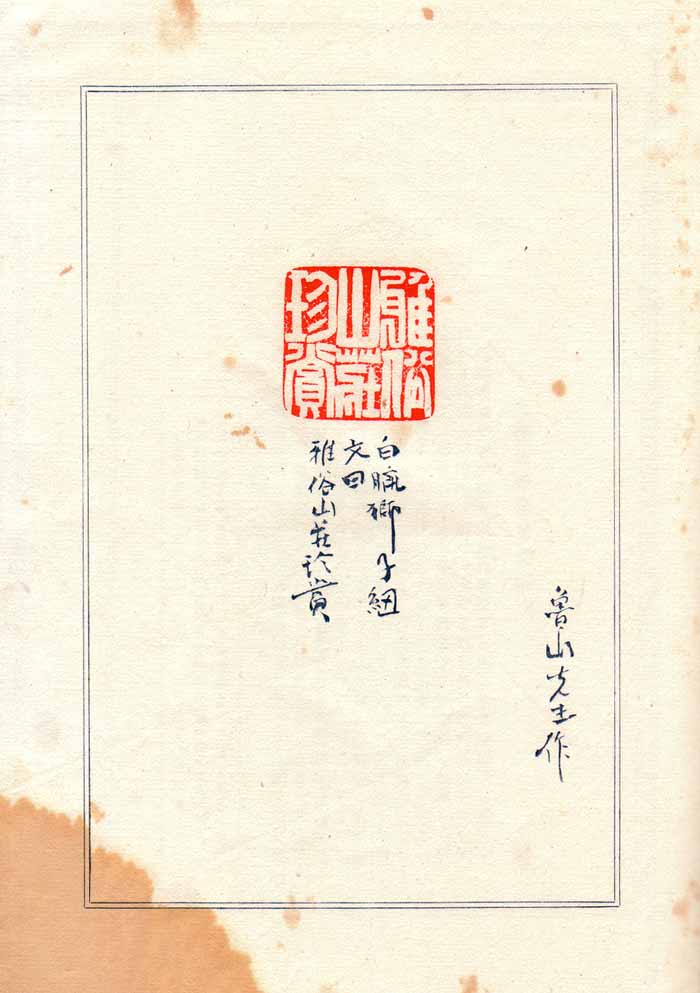 雅俗
山莊
珍賞
白獅子紐
文曰
雅俗山莊珍賞
魯山先生作